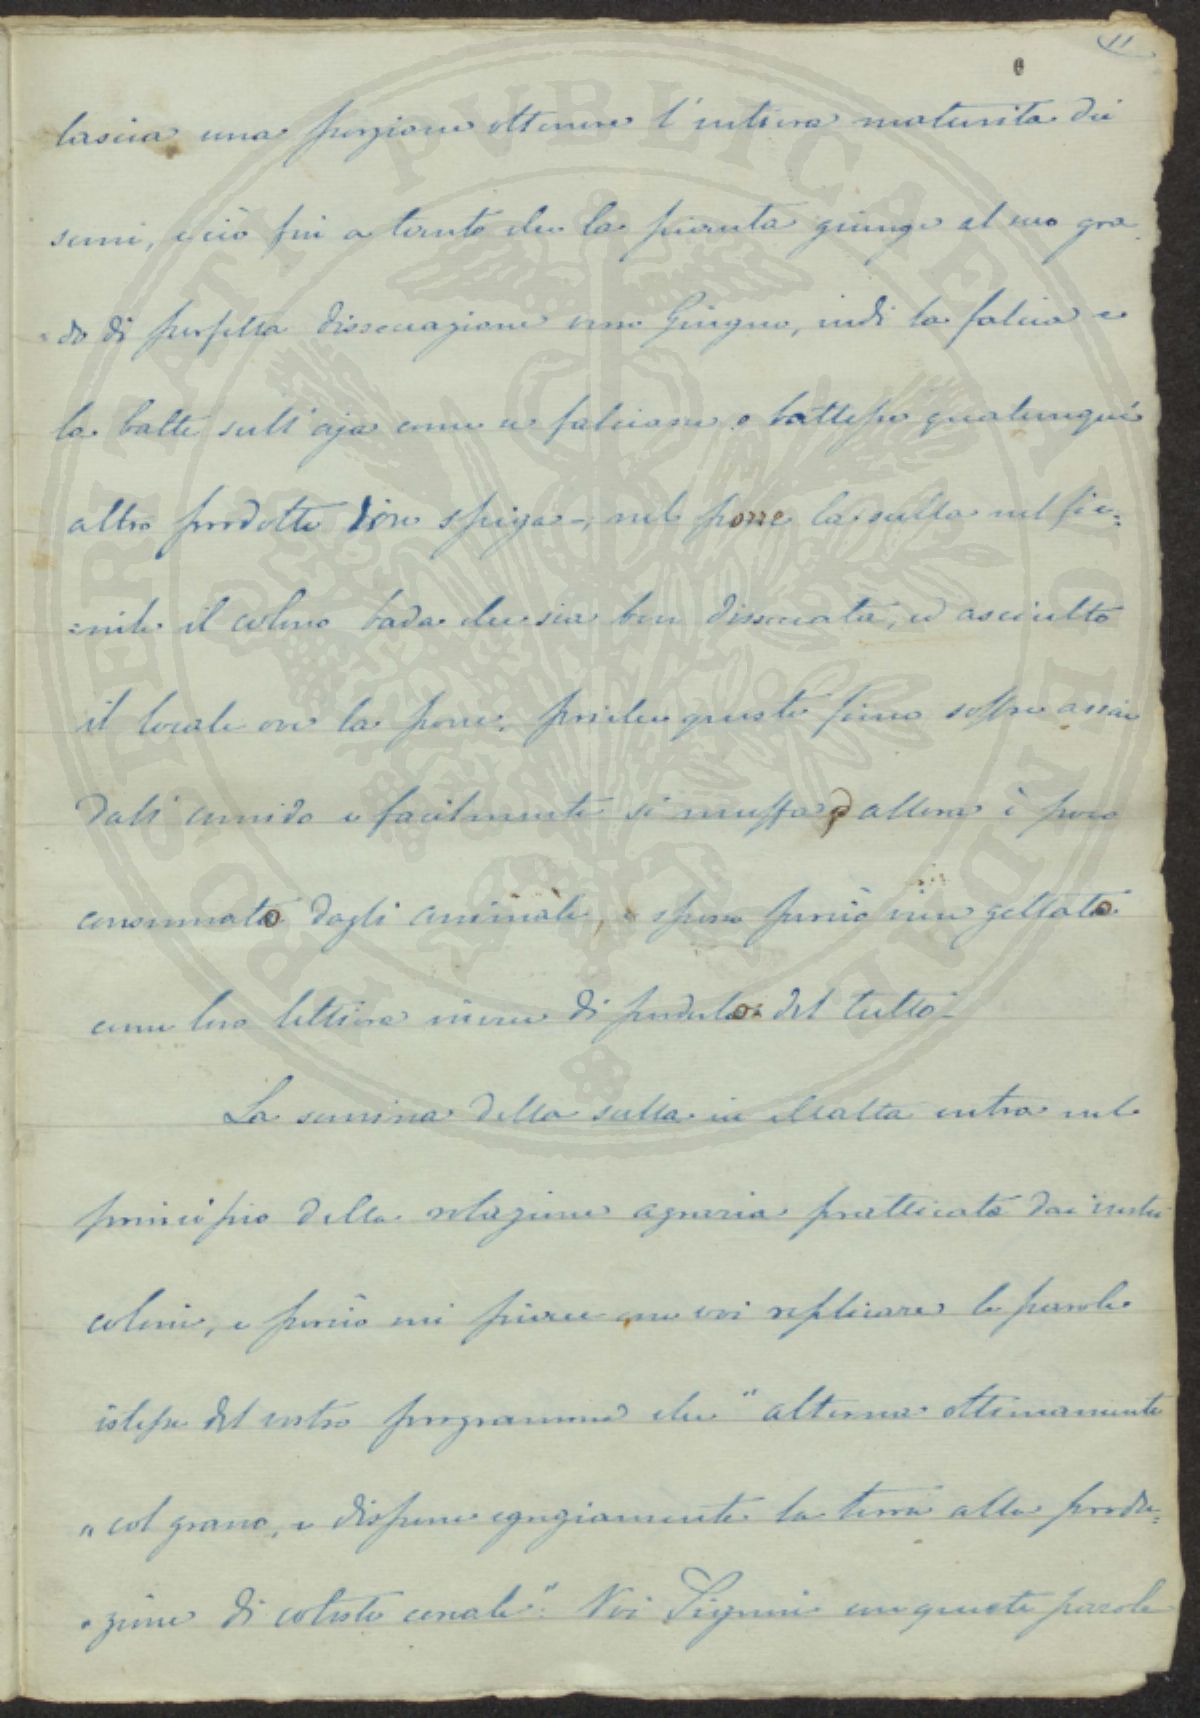 11
lascia una porzione ottenere l'intiera maturita dei
semi, e ciò fin a tanto che la pianta giunge al suo gra
=do di perfetta dissecazione verso Giugno, indi la falcia e
la batte sull'aja come si falciano e battesi qualunque
altro prodotto spiga -, nel porre la sulla nel fie=
=nile il colono bada che sia ben disseccata, ed asciutto
il locale ove la pone, poiche questo fieno soffre assai
dall'umido e facilmente si muffa e allora è poco
consumato dagli animali, e spesso perciò vien gettato
come loro lettiera invece di perderlo del tutto -
La semina della sulla in Malta entra nel
principio della rotazione agraria pratticata dai nostri
coloni, e perciò mi piace con voi replicare le parole
istesse del vostro programma che "alterna ottimamente
" col grano, e dispone egregiamente la terra alla produ=
=zione di cotesto cereale". Voi Signori con queste parole
PROSPERITATI PUBLICAE AUGENDAE